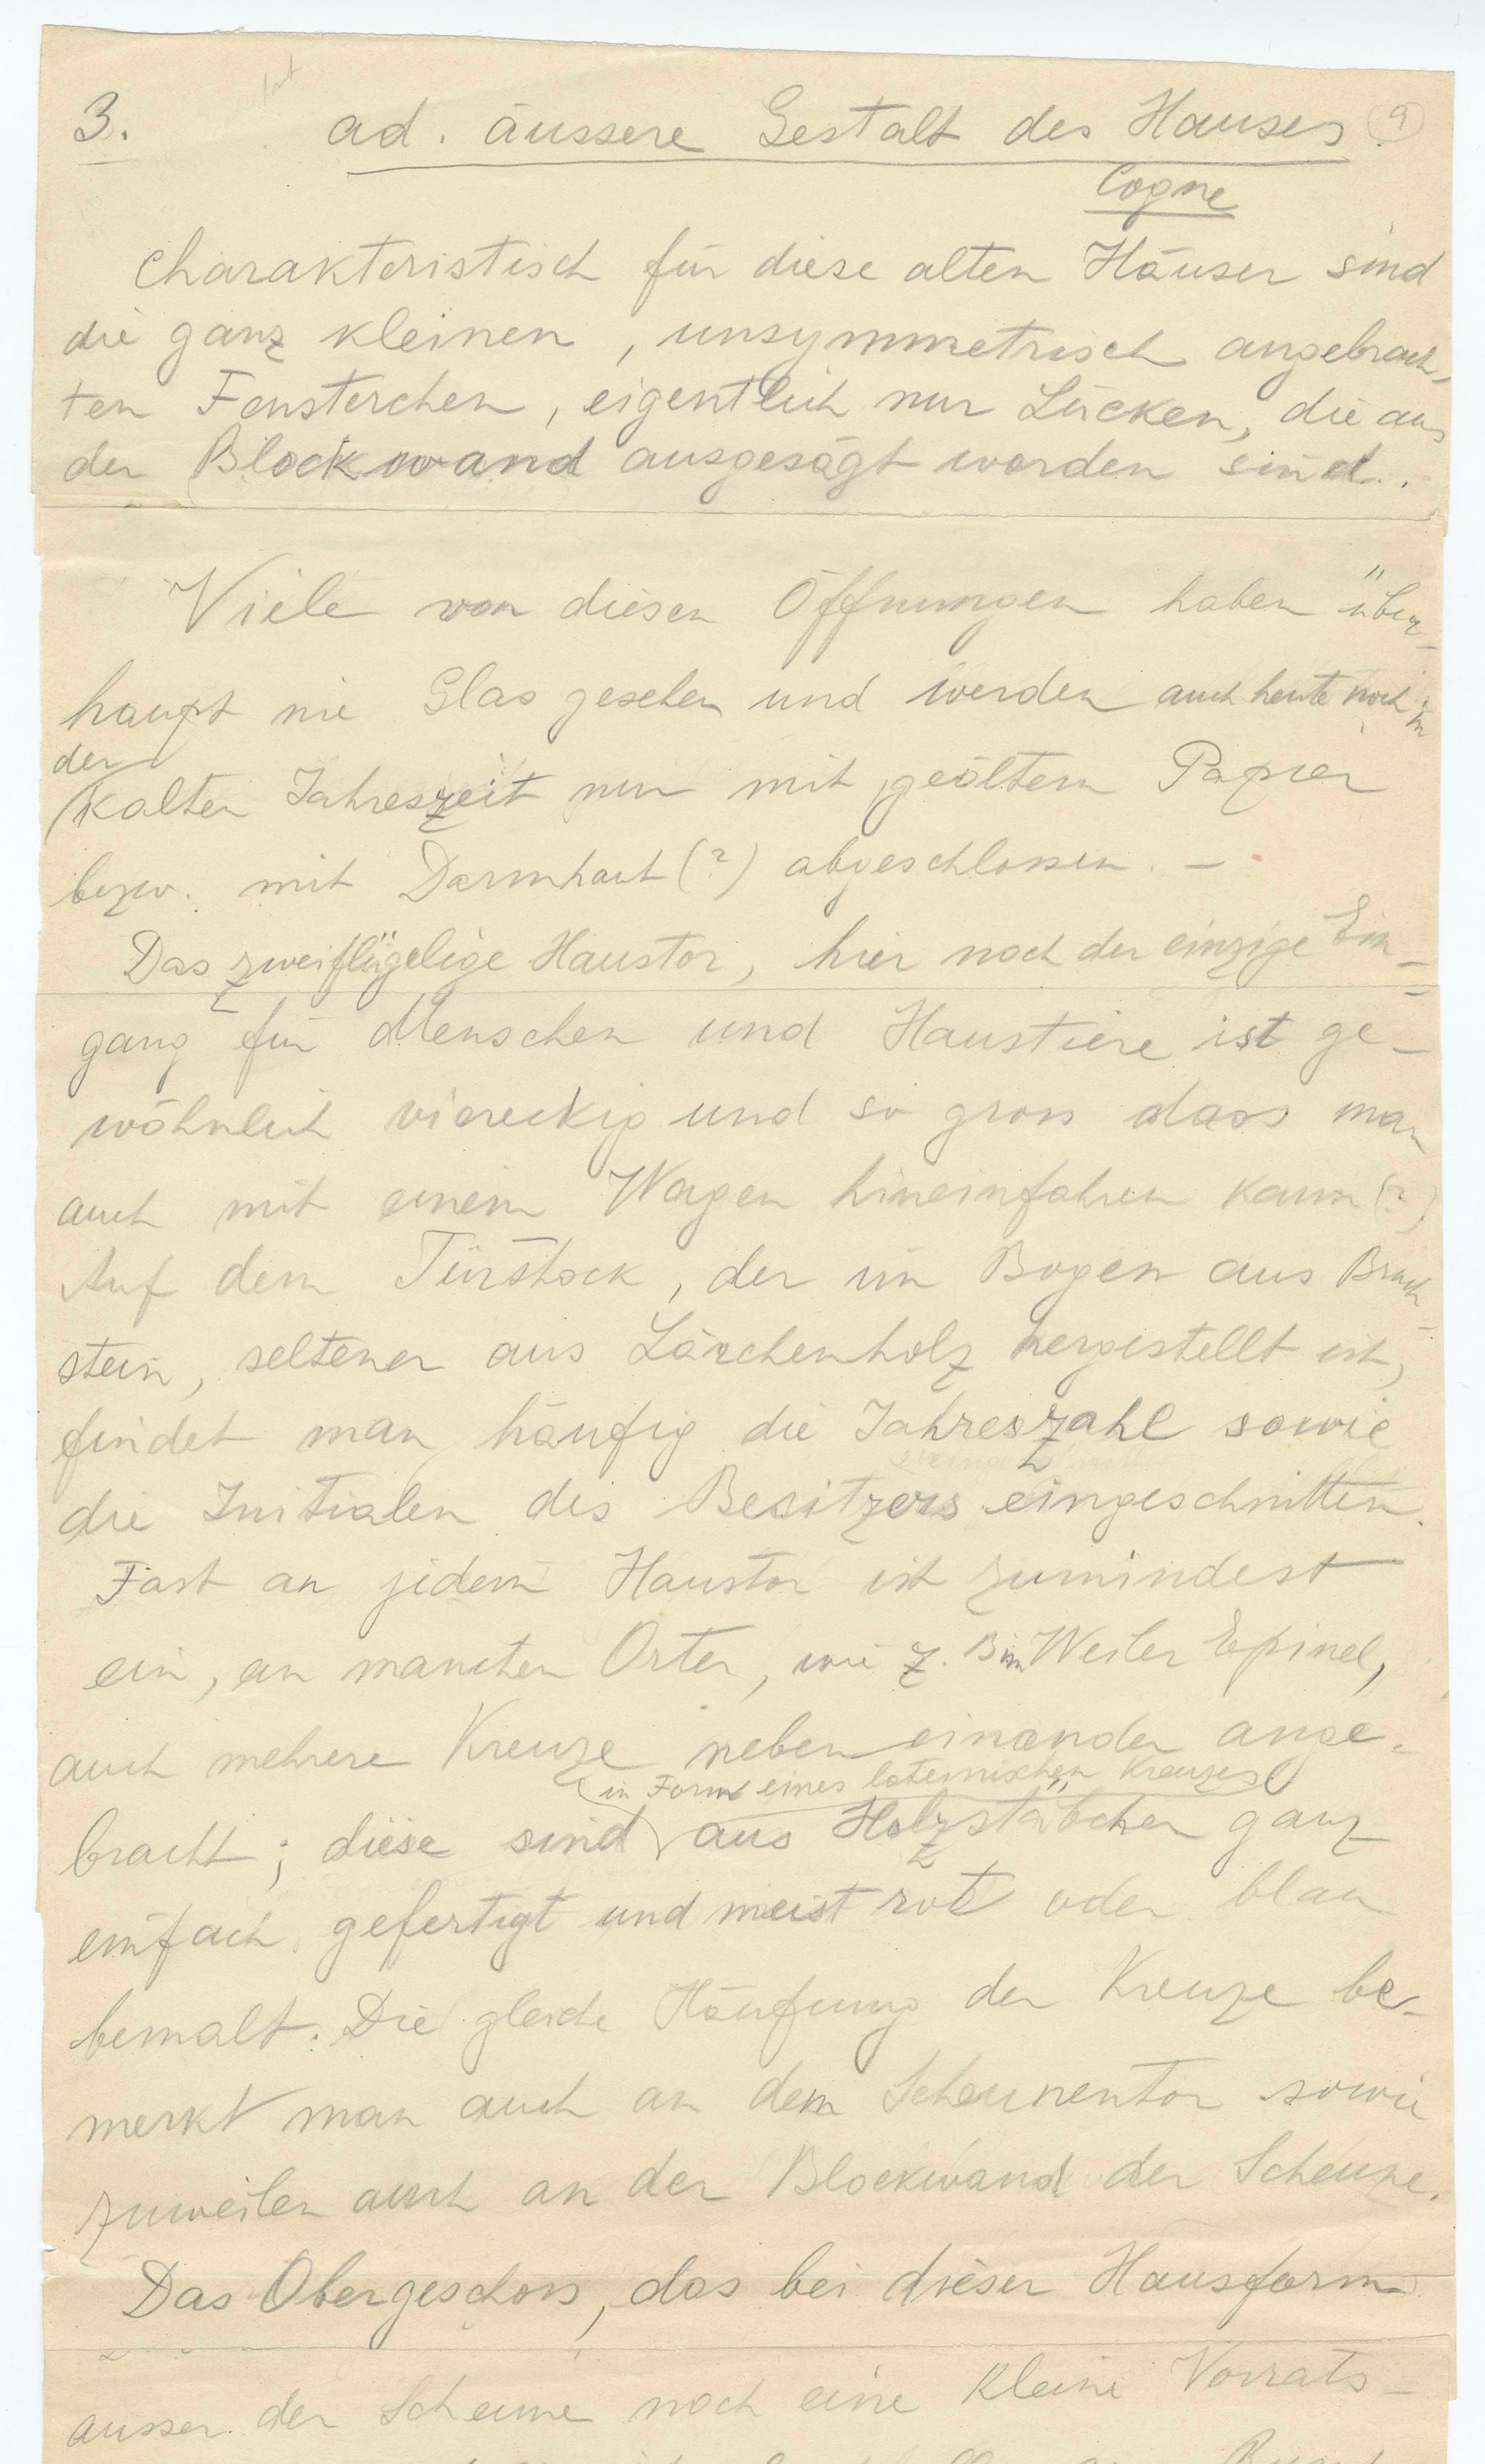 3. ad. äussere Gestalt des Hauses. 9
Cogne
Charakteristisch für diese alten Häuser sind
die ganz kleinen, unsymmetrisch angebrach-
ten Fensterchen, eigentlich nur Lücken, die aus
der Blockwand ausgesägt worden sind.
Viele von diesen Öffnungen haben über-
haupt nie Glas gesehen und werden auch heute noch in
der
kalten Jahreszeit nur mit geöltem Papier
bezw. mit Darmhaut (?) abgeschlossen. –
Das zweiflügelige Haustor, hier noch der einzige Ein-
gang für Menschen und Haustiere ist ge-
wöhnlich viereckig und so gross dass man
auch mit einem Wagen hineinfahren kann (?)
Auf dem Türstock, der im Bogen aus Bruch-
stein, seltener aus Lärchenholz hergestellt ist,
findet man häufig die Jahreszahl sowie
die Initialen des Besitzers eingeschnitten.
Fast an jedem Haustor ist zumindest
ein, an manchen Orten, wie z. B im Weiler Epinel,
auch mehrere Kreuze nebeneinander ange-
in Form eines lateinischen Kreuzes
bracht; diese sind aus Holzstäbchen ganz
einfach gefertigt und meist rot oder blau
bemalt. Die gleiche Häufung der Kreuze be-
merkt man auch an dem Scheunentor sowie
zuweilen auch an der Blockwand der Scheune.
Das Obergeschoss, das bei dieser Hausform
ausser der Scheune noch eine kleine Vorrats-